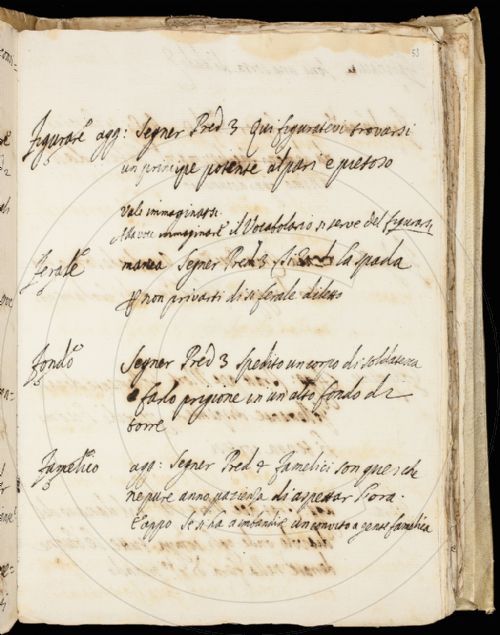 53
figurare agg: Segner Pred 3 Qui figuratevi trovarsi
un principe potente al pari e pietoso
Vale immaginarsi.
Alla voce immaginare il Vocabolario si serve del figurarsi
ferale manca Segner Pred 3 la spada
non privarti di si ferale diletto
fondo Segner Pred 3 Spedito un corpo di soldatesca
e farlo prigione in un alto fondo di
torre
famelico agg: Segner Pred famelici son quei che
ne pure anno pazienza di aspettar l'ora.
E appo Se si ha a imbandire un convito a gente famelica